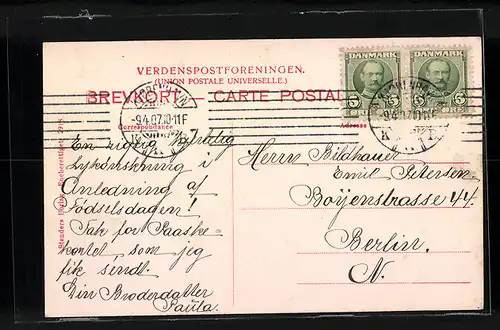 VERDENSPOSTFORENINGEN.
(UNION POSTALE UNIVERSELLE.)
BREVKORT — CARTE POSTALE
DANMARK
5 5
DANMARK
5 5
KJØBENHAVN
9.4.07.10-11F
K.
9.4.07.10-11F
K.
Correspondance
Adresse
Stenders Forlag. Eneberettiget
En rigtig hjertelig
Lykønskning i
Anledning af
Fødselsdagen!
Tak for Paaske-
kortet som jeg
fik sendt.
Din Broderdatter
Paula.
Herrn Bildhauer
Emil Petersen
Boyenstrasse 44.
Berlin.
N.